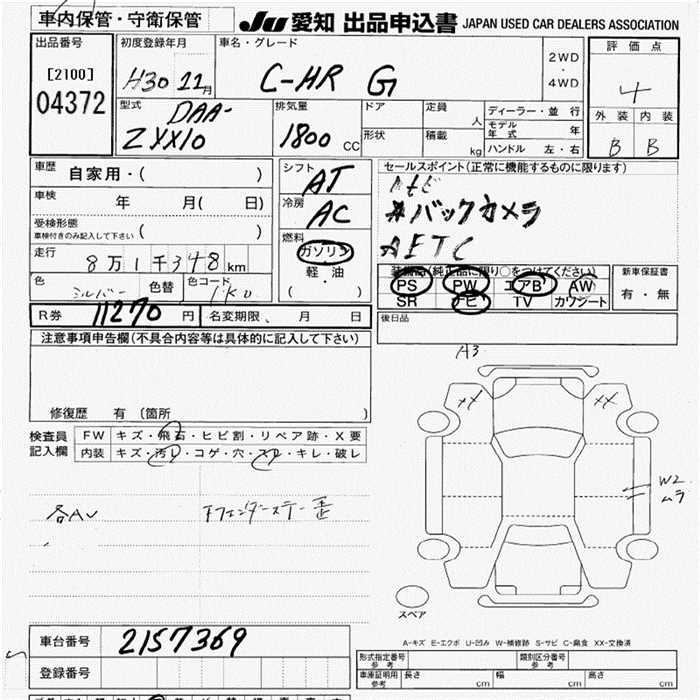 車内保管・守衛保管
JU 愛知 出品申込書 JAPAN USED CAR DEALERS ASSOCIATION
出品番号
[2100]
04372
初度登録年月
H30 11月
車名・グレード
C-HR G
2WD
・
4WD
評価点
4
外装 内装
B B
型式
DAA-
ZYX10
排気量
1800 CC
ドア
形状
定員 人
積載 kg
ディーラー・並行
モデル年式 年
ハンドル 左・右
車歴
自家用・( )
車検
年 月( 日)
受検形態
車検付きのみ記入して下さい ( )
走行
8万1千348km
色
シルバー
色替
色コード
1K0
シフト
AT
冷房
AC
燃料
ガソリン
軽・油
( ・ )
セールスポイント(正常に機能するものに限ります)
ナビ
#バックカメラ
#ETC
装備品(純正品に限り○をつけてください)
PS PW エアB AW
SR ナビ TV カワシート
新車保証書
有・無
R券 11270 円
名変期限、 月 日
後日品
注意事項申告欄(不具合内容等は具体的に記入して下さい)
修復歴 有 (箇所 )
検査員
記入欄
FW キズ・飛石・ヒビ割・リペア跡・X要
内装 キズ・汚レ・コゲ・穴・スレ・キレ・破レ
各AU
下フェンダーステー歪
A3
XX XX
W2
ムラ
スペア
A-キズ E-エクボ U-凹み W-補修跡 S-サビ C-腐食 XX-交換済
車台番号 2157369
登録番号
形式指定番号
参考
類別区分番号
参考
車庫証明用
参考
長さ cm 幅 cm 高さ cm